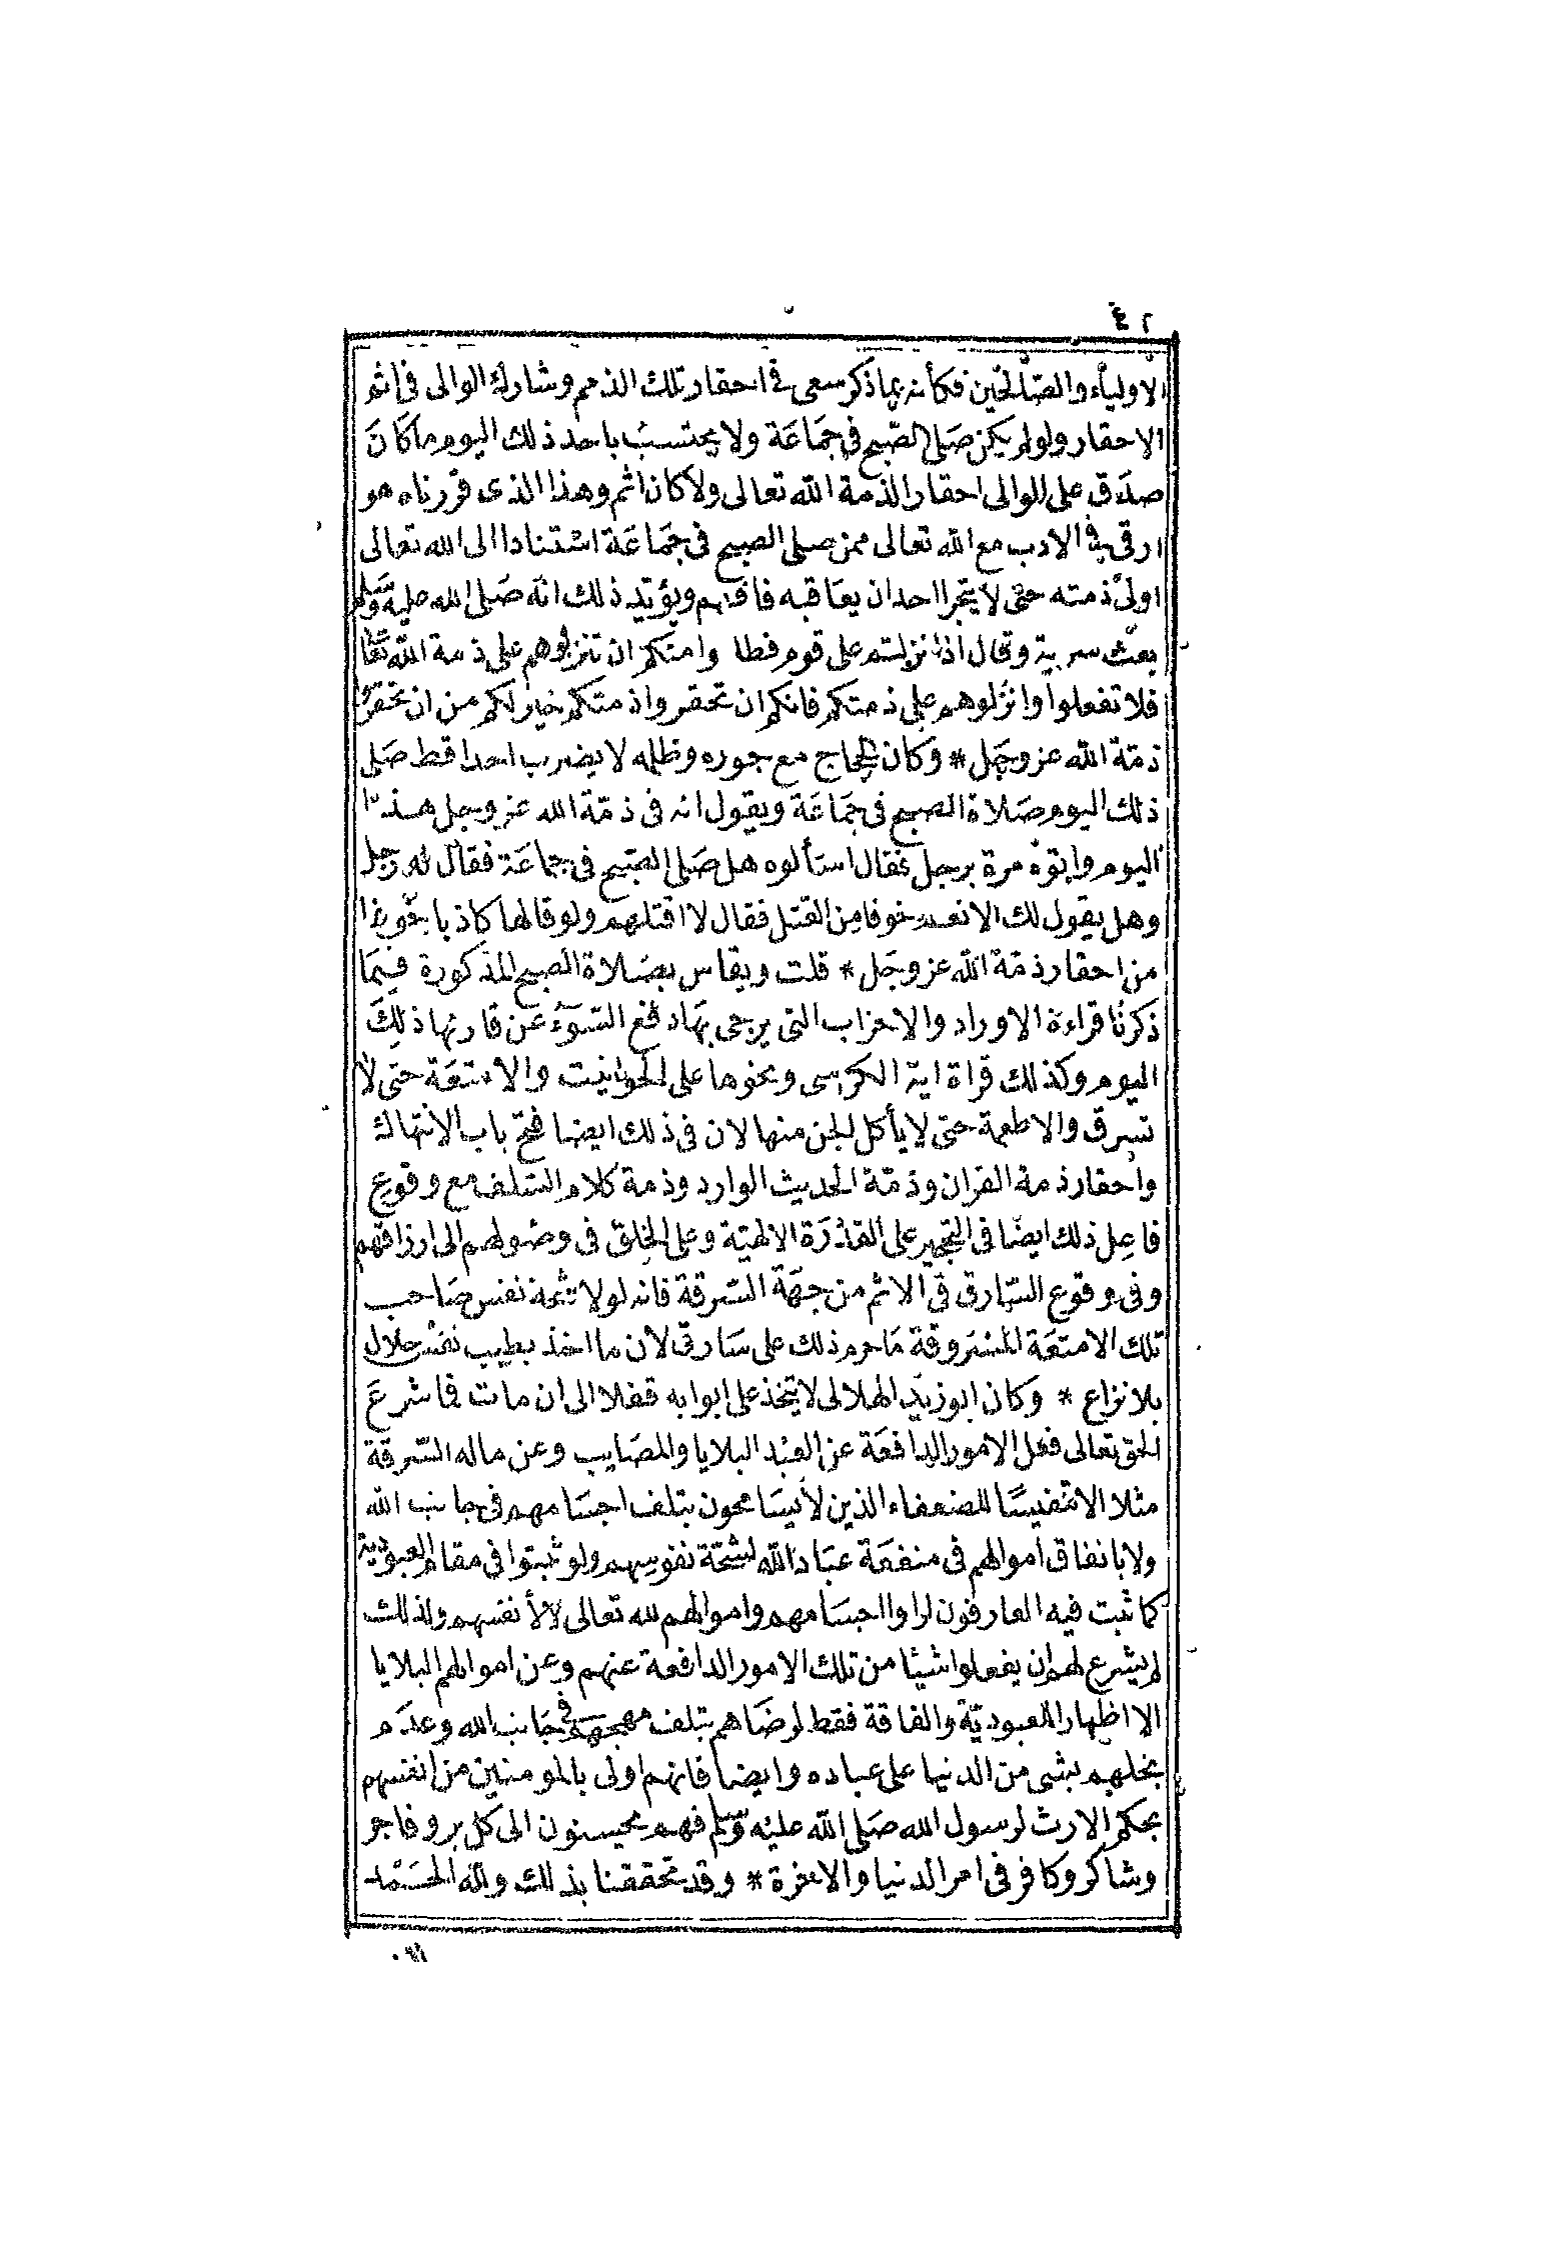 ٢٤
الاولياء والصالحين فكأنه بما ذكر سعى فى احقار تلك الذمم وشارك الوالى فى اثم
الاحقار ولو لم يكن صَلى الصّبح فى جمَاعَة ولا يحتسب باحد ذلك اليوم ما كانَ
صدَق على الوالى احقار الذمة الله تعالى ولا كان اثم وهذا الذى قررناه هو
ارقى فى الادب مع الله تعالى ممن صلى الصبح فى جمَاعَة استنادا الى الله تعالى
اولى ذمته حتى لا يتجرا احد ان يعاقبه فافهم ويؤيد ذلك انه صَلى الله عليه وسَلم
بعث سرية وقال اذا نزلتم على قوم فطا وامنكم ان تنزلوهم على ذمة الله تعا
فلا تفعلوا وانزلوهم على ذمتكم فانكم ان تحقروا ذمتكم خير لكم من ان تحقروا
ذمّة الله عز وجَل * وكان الحجاج مع جوره وظلمه لا يضرب احدا قط صَلى
ذلك اليوم صَلاة الصبح فى جمَاعَة ويقول انه فى ذمّة الله عز وجل هذا
اليوم واتوه مرة برجل فقال اسألوه هل صَلى الصّبح فى جماعَة فقال له رجل
وهل يقول لك الا نعم خوفا من القتل فقال لا اقتلهم ولو قالها كاذبا خوفا
من احقار ذمّة الله عز وجَل * قلت ويقاس بصَلاة الصبح المذكورة فيمَا
ذكرنا قراءة الاوراد والاحزاب التى يرجى بهَا دفع السّوء عن قارئها ذلك
اليوم وكذلك قراة اية الكرسى ونحوها على الحوانيت والامتعَة حتى لا
تسرق والاطعمة حتى لا يأكل الجن منها لان فى ذلك ايضا فتح باب الانتهاك
واحقار ذمة القران وذمّة الحديث الوارد وذمة كلام السّلف مع وقوع
فاعِل ذلك ايضًا فى التجهير على القدْرَة الالهيّة وعلى الخلق فى وصُولهم الى ارزاقهم
وفى وقوع السّارق فى الاثم من جهَة السّرقة فانه لولا شحة نفس صَاحب
تلك الامتعَة المسْروقة مَا حرم ذلك على سَارق لان ما اخذ بطيب نفس حلال
بلا نزاع * وكان ابو زيد الهلالى لا يتخذ على ابوابه قفلا الى ان مات فما شرعَ
الحق تعالى فعل الامور الدافعَة عن العبْد البلايا والمصَايب وعن ماله السّرقة
مثلا الا تنفيسًا للضعفاء الذين لا يسَامحون بتلف اجسَامهم فى جانب الله
ولا بانفاق اموالهم فى منفعَة عبَاد الله لشحّة نفوسهم ولو ثبتوا فى مقام العبودية
كما ثبت فيه العارفون لراوا اجسَامهم واموالهم لله تعالى لا لأنفسهم ولذلك
لم يشرع لهم ان يفعلوا شيئا من تلك الامور الدافعة عنهم وعن اموالهم البلايا
الا اظهارا للعبوديّة والفاقة فقط لرضَاهم بتلف مهجهم فى جَانب الله وعدَم
بخلهم بشى من الدنيا على عباده وايضا فانهم اولى بالمومنين من انفسهم
بحكم الارث لرسول الله صَلى الله عليْه وَسَلم فهم محسنون الى كل بر وفاجر
وشاكر وكافر فى امر الدنيا والاخرة * وقد تحققنا بذلك ولله الحَمْد